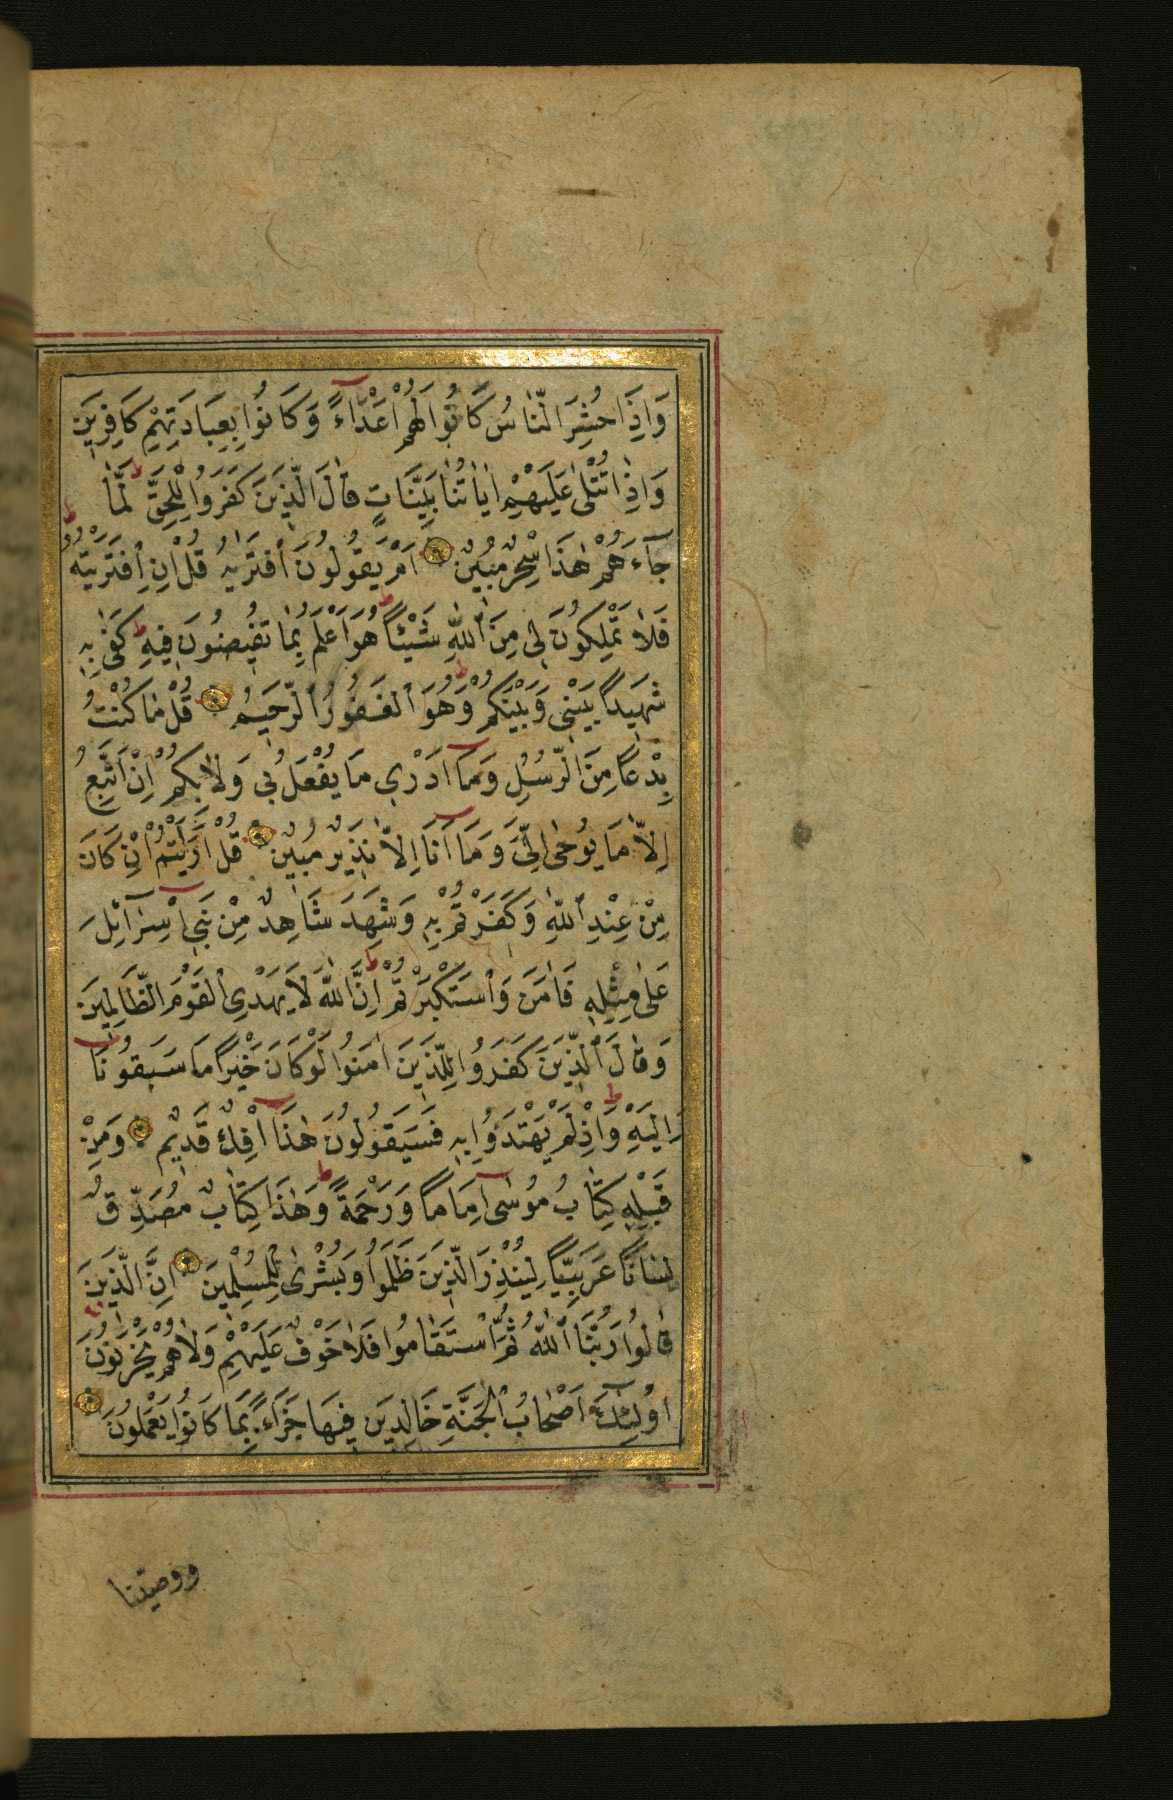 وَاِذَا حُشِرَ النَّاسُ كَانُوا لَهُمْ اَعْدَٓاءً وَكَانُوا بِعِبَادَتِهِمْ كَافِرِينَ
وَاِذَا تُتْلٰى عَلَيْهِمْ اٰيَاتُنَا بَيِّنَاتٍ قَالَ الَّذِينَ كَفَرُوا لِلْحَقِّ لَمَّا
جَٓاءَهُمْ هٰذَا سِحْرٌ مُبِينٌ اَمْ يَقُولُونَ افْتَرٰيهُ قُلْ اِنِ افْتَرَيْتُهُ
فَلَا تَمْلِكُونَ لِى مِنَ اللّٰهِ شَيْئًا هُوَ اَعْلَمُ بِمَا تُفِيضُونَ فِيهِ كَفٰى بِهِ
شَهِيدًا بَيْنِى وَبَيْنَكُمْ وَهُوَ الْغَفُورُ الرَّحِيمُ قُلْ مَا كُنْتُ
بِدْعًا مِنَ الرُّسُلِ وَمَٓا اَدْرِى مَا يُفْعَلُ بِى وَلَا بِكُمْ اِنْ اَتَّبِعُ
اِلَّا مَا يُوحٰى اِلَىَّ وَمَٓا اَنَا اِلَّا نَذِيرٌ مُبِينٌ قُلْ اَرَاَيْتُمْ اِنْ كَانَ
مِنْ عِنْدِ اللّٰهِ وَكَفَرْتُمْ بِهِ وَشَهِدَ شَاهِدٌ مِنْ بَنِٓى اِسْرَٓائِلَ
عَلٰى مِثْلِهِ فَاٰمَنَ وَاسْتَكْبَرْتُمْ اِنَّ اللّٰهَ لَا يَهْدِى الْقَوْمَ الظَّالِمِينَ
وَقَالَ الَّذِينَ كَفَرُوا لِلَّذِينَ اٰمَنُوا لَوْ كَانَ خَيْرًا مَا سَبَقُونَٓا
اِلَيْهِ وَاِذْ لَمْ يَهْتَدُوا بِهِ فَسَيَقُولُونَ هٰذَٓا اِفْكٌ قَدِيمٌ وَمِنْ
قَبْلِهِ كِتَابُ مُوسٰٓى اِمَامًا وَرَحْمَةً وَهٰذَا كِتَابٌ مُصَدِّقٌ
لِسَانًا عَرَبِيًّا لِيُنْذِرَ الَّذِينَ ظَلَمُوا وَبُشْرٰى لِلْمُسْلِمِينَ اِنَّ الَّذِينَ
قَالُوا رَبُّنَا اللّٰهُ ثُمَّ اسْتَقَامُوا فَلَا خَوْفٌ عَلَيْهِمْ وَلَا هُمْ يَحْزَنُونَ
اُولٰٓئِكَ اَصْحَابُ الْجَنَّةِ خَالِدِينَ فِيهَا جَزَٓاءً بِمَا كَانُوا يَعْمَلُونَ
ووصيّنا